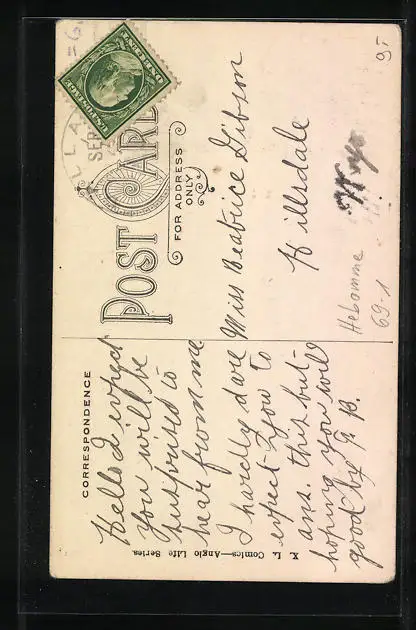 POST CARD
FOR ADDRESS
ONLY
CORRESPONDENCE
Hello I expect
you will be
surprised to
hear from me
I hardly dare
expect you to
ans. this but
hoping you will
good by G. B.
Miss Beatrice Gibson
Hillsdale
Wyo
Hebamme
69-1
95
X. L. Comics—Anglo Life Series.
U.S. POSTAGE
SEP